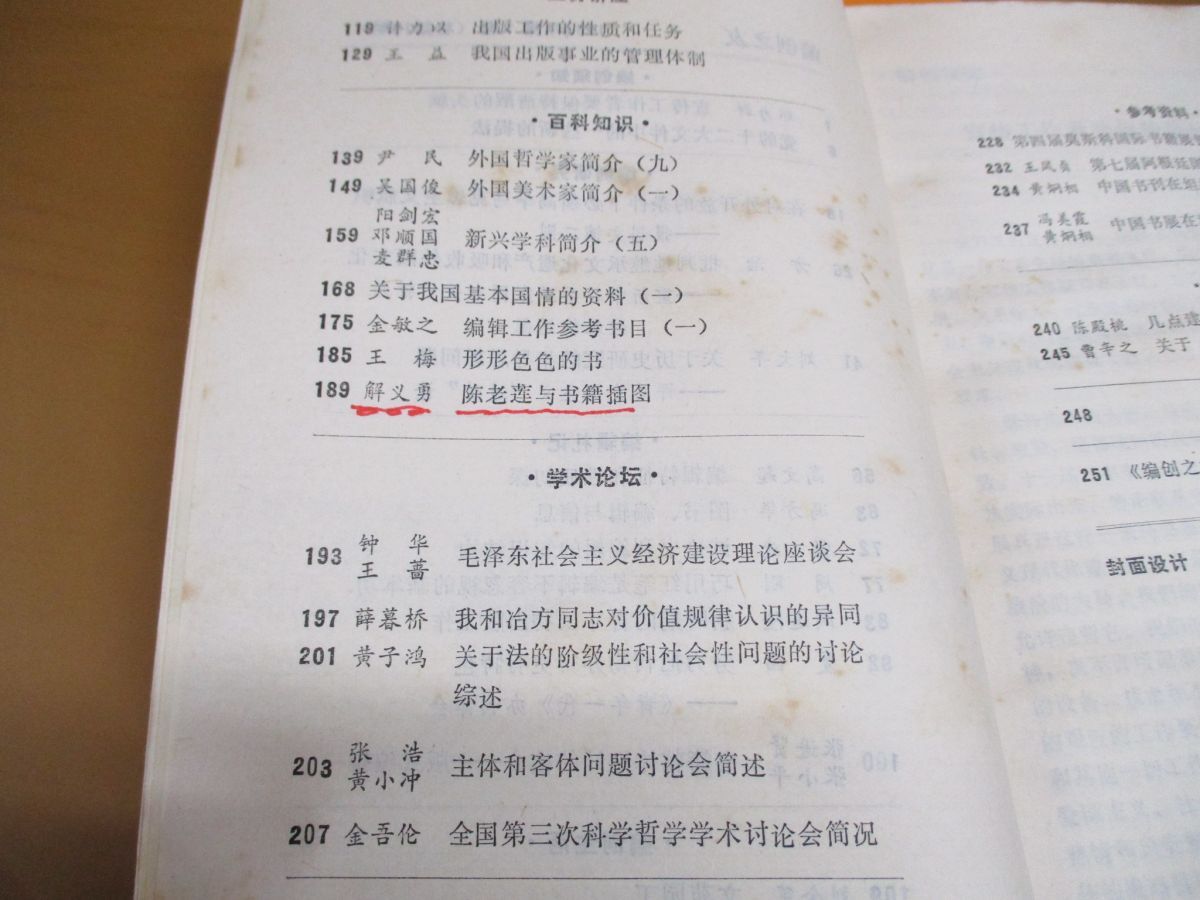 119 许力以 出版工作的性质和任务
129 王 益 我国出版事业的管理体制
·百科知识·
139 尹 民 外国哲学家简介（九）
149 吴国俊 外国美术家简介（一）
阳剑宏
159 邓顺国 新兴学科简介（五）
麦群忠
168 关于我国基本国情的资料（一）
175 金敏之 编辑工作参考书目（一）
185 王 梅 形形色色的书
189 解义勇 陈老莲与书籍插图
·学术论坛·
193 钟 华 毛泽东社会主义经济建设理论座谈会
王 蔷
197 薛暮桥 我和冶方同志对价值规律认识的异同
201 黄子鸿 关于法的阶级性和社会性问题的讨论
综述
203 张 浩 主体和客体问题讨论会简述
黄小冲
207 金吾伦 全国第三次科学哲学学术讨论会简况
·参考资料·
228 第四届莫斯科国际书籍展
232 王凤贞 第七届阿根廷
234 黄炳相 中国书刊在
237 冯美霞 中国书展在
黄炳相
240 陈殿桃 几点建
245 曹辛之 关于
248
251 《编创之
封面设计